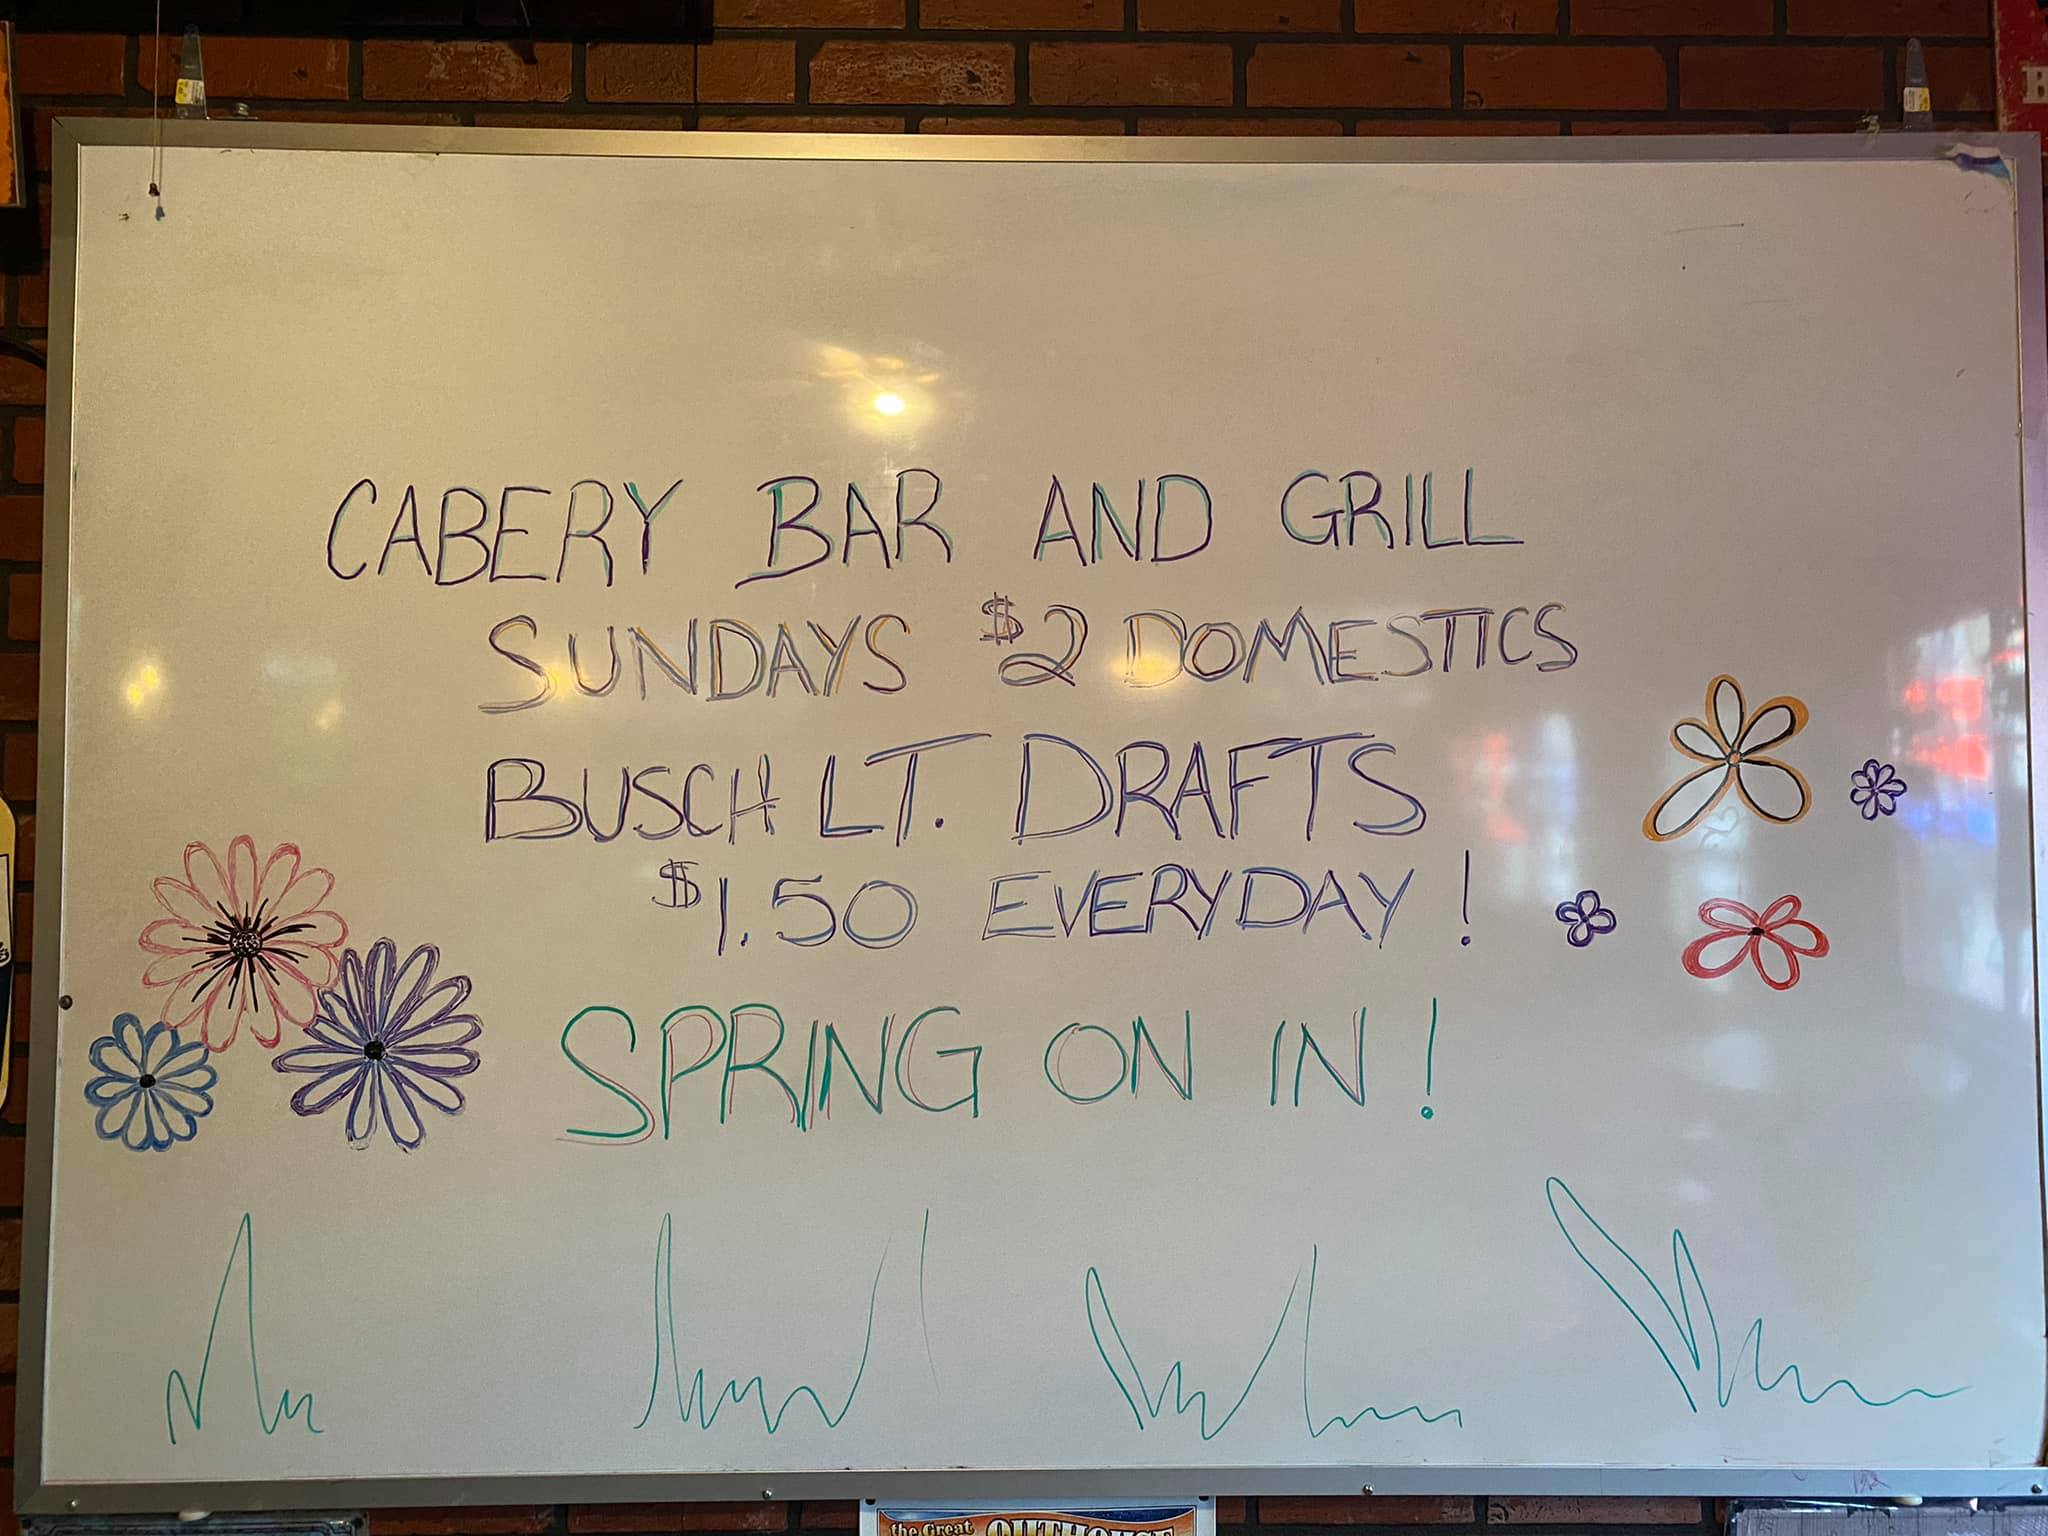 CABERY BAR AND GRILL
SUNDAYS $2 DOMESTICS
BUSCH LT. DRAFTS
$1.50 EVERYDAY!
SPRING ON IN!
the Great OUTHOUSE